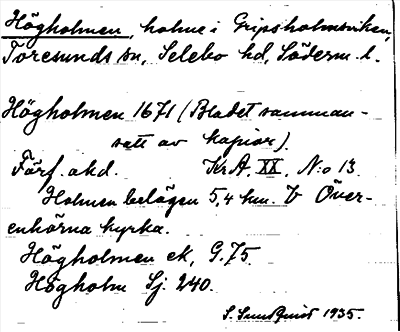 Högholmen, holme i Gripsholmsviken,
Toresunds sn, Selebo hd, Söderm. l.
Högholmen 1671 (Bladet samman-
satt av kopior).
Förf. okd. KrA, XX, N:o 13.
Holmen belägen 5,4 km. V Över-
enhörna kyrka.
Högholmen ek, G. 75.
Högholm Sj. 240.
S. Sundquist 1935.